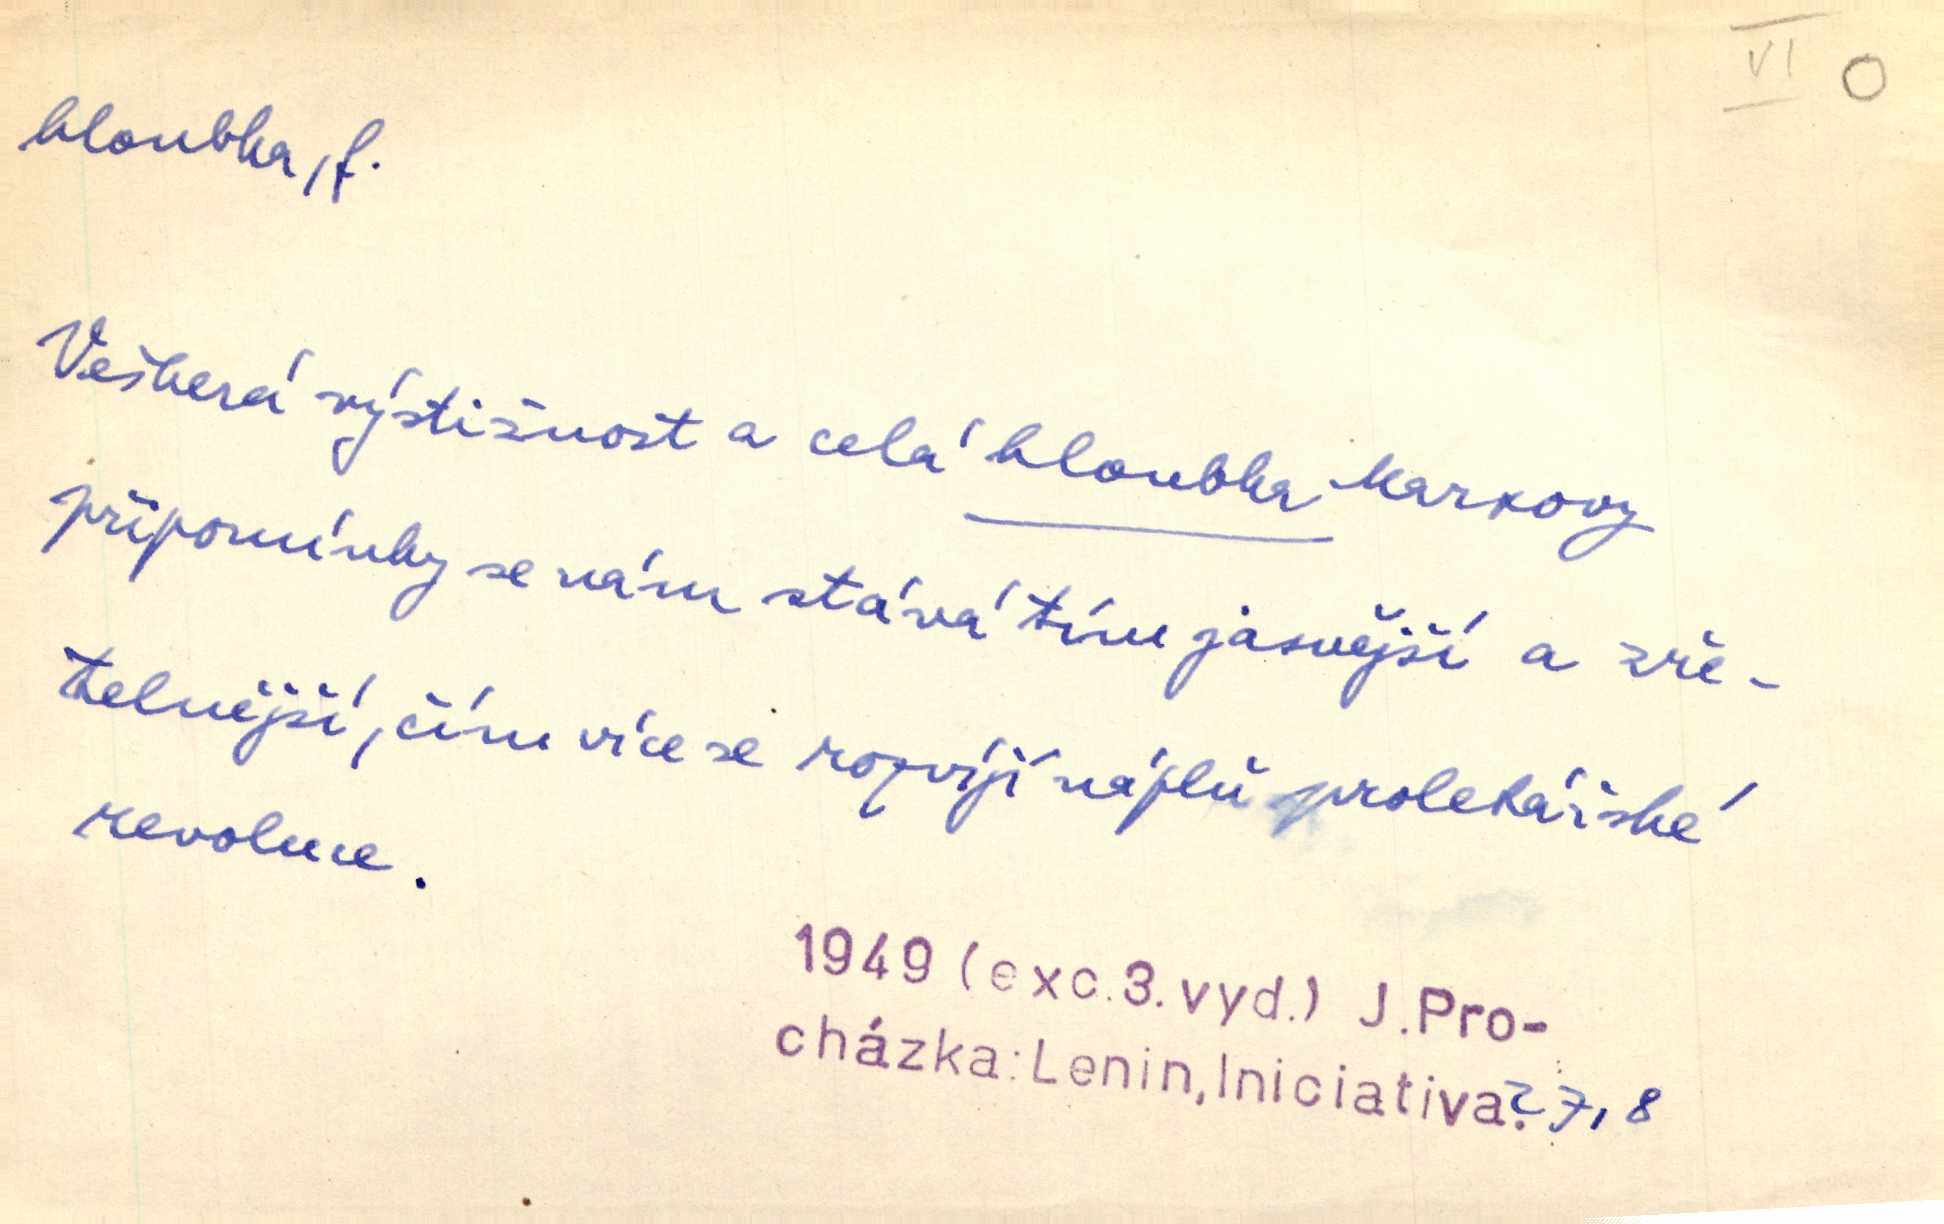 VI O
hloubka, f.
Veškerá výstižnost a celá hloubka Marxovy
připomínky se nám stává tím jasnější a zře-
telnější, čím více se rozvíjí náplň proletářské
revoluce.
1949 (exc. 3. vyd.) J. Pro-
cházka: Lenin, Iniciativa. 27, 8